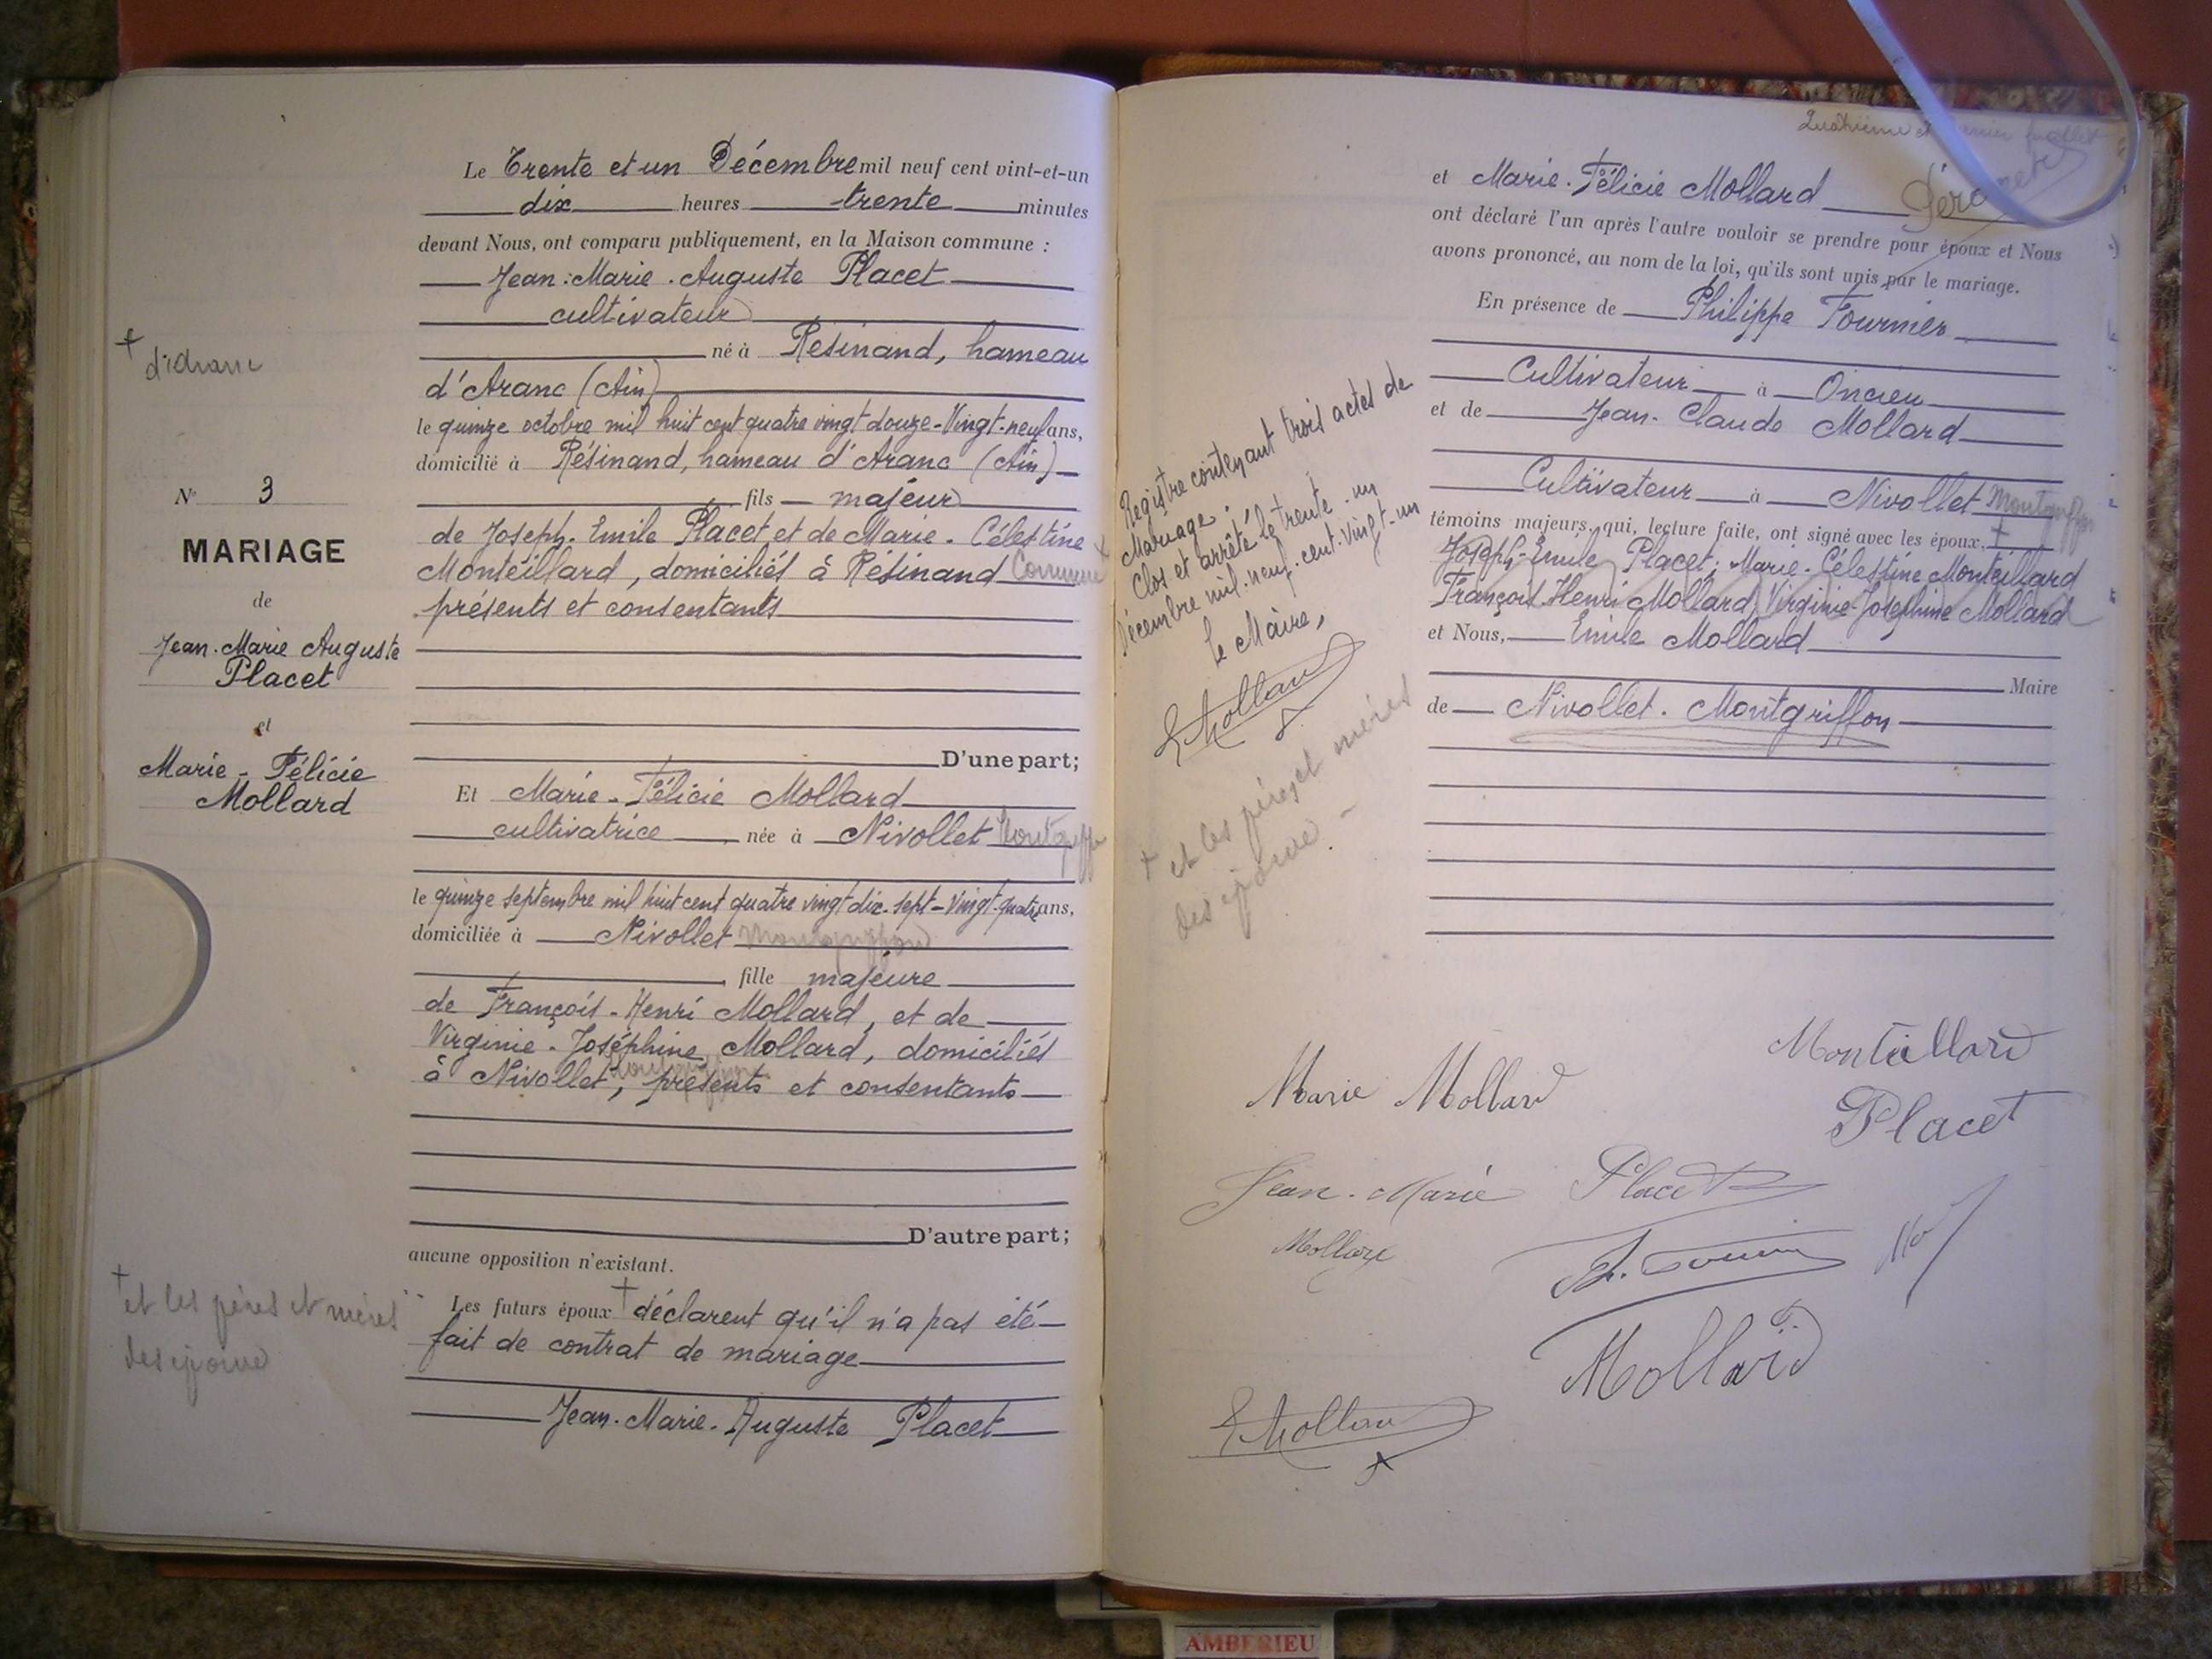 Le Trente et un Décembre mil neuf cent vint-et-un
dix heures trente minutes
devant Nous, ont comparu publiquement, en la Maison commune :
Jean-Marie-Auguste Placet
cultivateur
né à Résinand, hameau
d'Aranc (Ain)
le quinze octobre mil huit cent quatre vingt douze - Vingt-neuf ans,
domicilié à Résinand, hameau d'Aranc (Ain)
fils majeur
de Joseph-Emile Placet et de Marie-Célestine
Montéillard, domiciliés à Résinand Commune
présents et consentants
D'une part;
Et Marie-Félicie Mollard
cultivatrice née à Nivollet Montgriffon
le quinze septembre mil huit cent quatre vingt dix-sept - Vingt-quatre ans,
domiciliée à Nivollet Montgriffon
fille majeure
de François-Henri Mollard, et de
Virginie-Joséphine Mollard, domiciliés
à Nivollet Montgriffon, présents et consentants
D'autre part;
aucune opposition n'existant.
Les futurs époux + déclarent qu'il n'a pas été
fait de contrat de mariage
Jean-Marie-Auguste Placet
+
d'Aranc
N° 3
MARIAGE
de
Jean-Marie Auguste
Placet
et
Marie-Félicie
Mollard
+ et les pères et mères
des époux
Quatrième et dernier feuillet
et Marie-Félicie Mollard
ont déclaré l'un après l'autre vouloir se prendre pour époux et Nous
avons prononcé, au nom de la loi, qu'ils sont unis par le mariage.
En présence de Philippe Fournier
Cultivateur à Oncieu
et de Jean-Claude Mollard
Cultivateur à Nivollet Montgriffon
témoins majeurs, qui, lecture faite, ont signé avec les époux, +
Joseph-Emile Placet; Marie-Célestine Montéillard
François-Henri Mollard, Virginie-Joséphine Mollard
et Nous, Emile Mollard
Maire
de Nivollet-Montgriffon
Registre contenant trois actes de
Mariage.
Clos et arrêté le trente-un
Décembre mil-neuf-cent-Vingt-un
Le Maire,
E Mollard
+ et les pères et mères
des époux.
Marie Mollard
Montéillard
Placet
Jean-Marie Placet
Mollard
Ph. Fournier
Mollard
E Mollard
AMBERIEU